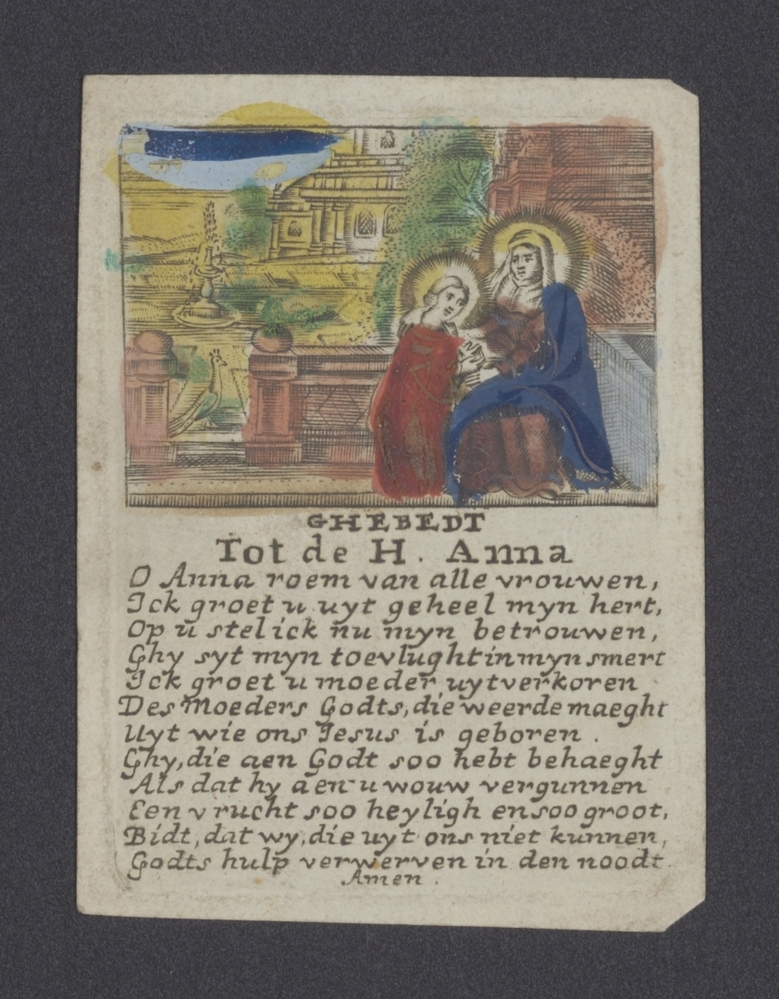 GHEBEDT
Tot de H. Anna
O Anna roem van alle vrouwen,
Ick groet u uyt geheel myn hert,
Op u stel ick nu myn betrouwen,
Ghy syt myn toevlught in myn smert
Ick groet u moeder uytverkoren
Des Moeders Godts, die weerde maeght
Uyt wie ons Jesus is geboren.
Ghy, die aen Godt soo hebt behaeght
Als dat hy aen u wouw vergunnen
Een vrucht soo heyligh en soo groot,
Bidt, dat wy, die uyt ons niet kunnen,
Godts hulp verwerven in den noodt.
Amen.